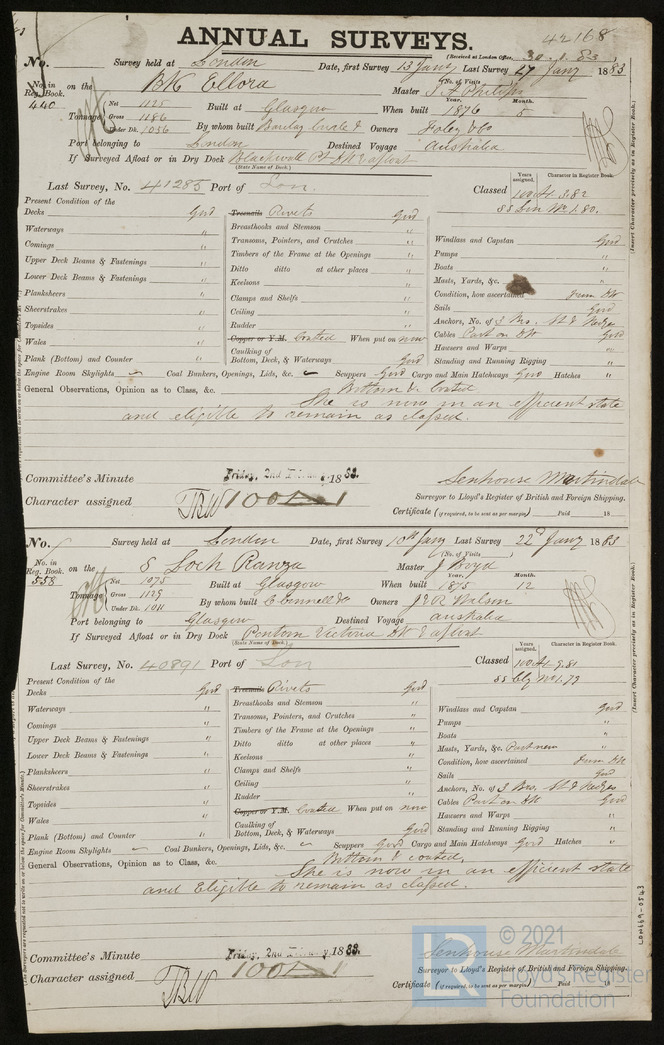 42168
ANNUAL SURVEYS.
(Received at London Office, 30.1.83)
No. Survey held at London Date, first Survey 13 Jany Last Survey 27 Jany 1883
No. in Reg. Book. 440 on the BK Ellora (No. of Visits ) Master
Tonnage Net 1125 Gross 1186 Under Dk. 1036 Built at Glasgow When built Year. 1876 Month. 5
By whom built Barclay Curle & Owners Foley & Co
Port belonging to London Destined Voyage Australia
If Surveyed Afloat or in Dry Dock Blackwall Pt DK & afloat
(State Name of Dock.)
Last Survey, No. 41285 Port of Lon. Classed Years assigned. Character in Register Book. 100A1 3.82
SS Lon No 1.80.
(Insert Character precisely as in Register Book.)
Present Condition of the
Decks Good
Waterways "
Comings "
Upper Deck Beams & Fastenings "
Lower Deck Beams & Fastenings "
Planksheers "
Sheerstrakes "
Topsides "
Wales "
Plank (Bottom) and Counter "
Treenails Rivets Good
Breasthooks and Stemson "
Transoms, Pointers, and Crutches "
Timbers of the Frame at the Openings "
Ditto ditto at other places "
Keelsons "
Clamps and Shelfs "
Ceiling "
Rudder "
Copper or Y.M. Coated When put on now
Caulking of Bottom, Deck, & Waterways Good
Windlass and Capstan Good
Pumps "
Boats "
Masts, Yards, &c. "
Condition, how ascertained from DK
Sails Good
Anchors, No. of 3 Bro, St & Kedges
Cables Part on DK Good
Hawsers and Warps "
Standing and Running Rigging "
Engine Room Skylights Coal Bunkers, Openings, Lids, &c. Scuppers Good Cargo and Main Hatchways Good Hatches "
General Observations, Opinion as to Class, &c. Bottom & coated
She is now in an efficient state
and eligible to remain as classed.
Committee's Minute Friday, 2nd February 1883.
Character assigned TBW 100A1
Senhouse Martindale
Surveyor to Lloyd's Register of British and Foreign Shipping.
Certificate (if required, to be sent as per margin) Paid 18
No. Survey held at London Date, first Survey 10th Jany Last Survey 22d Jany 1883
No. in Reg. Book. 558 on the S Loch Ranza (No. of Visits ) Master J Boyd
Tonnage Net 1075 Gross 1129 Under Dk. 1011 Built at Glasgow When built Year. 1875 Month. 12
By whom built C Connell & Co Owners J & R Wilson
Port belonging to Glasgow Destined Voyage Australia
If Surveyed Afloat or in Dry Dock Pontoon Victoria DK & afloat
(State Name of Dock.)
Last Survey, No. 40891 Port of Lon Classed Years assigned. Character in Register Book. 100A1 9.81
SS Clg No 1.79
(Insert Character precisely as in Register Book.)
Present Condition of the
Decks Good
Waterways "
Comings "
Upper Deck Beams & Fastenings "
Lower Deck Beams & Fastenings "
Planksheers "
Sheerstrakes "
Topsides "
Wales "
Plank (Bottom) and Counter "
Treenails Rivets Good
Breasthooks and Stemson "
Transoms, Pointers, and Crutches "
Timbers of the Frame at the Openings "
Ditto ditto at other places "
Keelsons "
Clamps and Shelfs "
Ceiling "
Rudder "
Copper or Y.M. Coated When put on now
Caulking of Bottom, Deck, & Waterways Good
Windlass and Capstan Good
Pumps "
Boats "
Masts, Yards, &c. Part new "
Condition, how ascertained from DK
Sails Good
Anchors, No. of 3 Bro, St & Kedges
Cables Part on DK Good
Hawsers and Warps "
Standing and Running Rigging "
Engine Room Skylights Coal Bunkers, Openings, Lids, &c. Scuppers Good Cargo and Main Hatchways Good Hatches "
General Observations, Opinion as to Class, &c. Bottom & coated,
She is now in an efficient state
and Eligible to remain as classed.
LON469-0543
Committee's Minute Friday, 2nd February 1883.
Character assigned TBW 100A1
Senhouse Martindale
Surveyor to Lloyd's Register of British and Foreign Shipping.
Certificate (if required, to be sent as per margin) Paid 18
LR © 2021
Lloyd's Register
Foundation